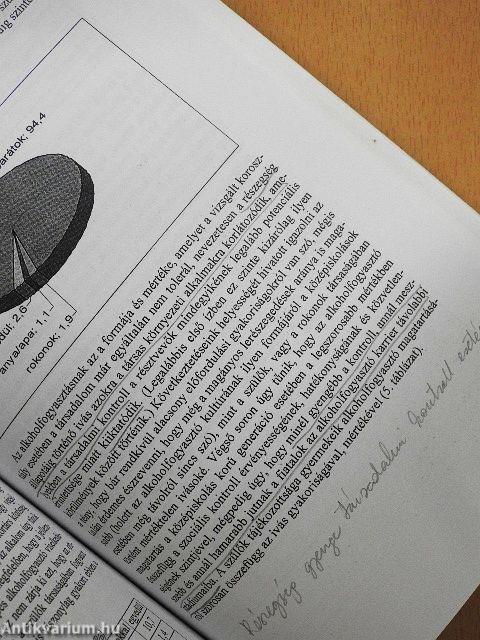 barátok; 94,4
egyedül; 2,6
anya/apa; 1,1
rokonok; 1,9
Az alkoholfogyasztásnak az a formája és mértéke, amelyet a vizsgált korosz-
tály esetében a társadalom már egyáltalán nem tolerál, nevezetesen a részegség
állapotáig történő ivás azokra a társas környezeti alkalmakra korlátozódik, ame-
lyekben a társadalmi kontroll a résztvevők mindegyikének legalább potenciális
érintettsége miatt kiiktatódik. (Legalábbis első ízben ez szinte kizárólag ilyen
körülmények között történik.) Következtetéseink helyességét hivatott igazolni az
a tény, hogy bár rendkívül alacsony előfordulási gyakoriságokról van szó, mégis
érdemes észrevenni, hogy még a magányos lerészegedések aránya is maga-
sabb (holott az alkoholfogyasztó kultúrának ilyen formájáról a középiskolások
esetében még távolról sincs szó), mint a szülők, vagy a rokonok társaságában
történt mértéktelen ivásoké. Végső soron úgy tűnik, hogy az alkoholfogyasztó
magatartás a középiskolás korú generáció esetében a legszorosabb mértékben
összefügg a szociális kontroll érvényességének, hatékonyságának és közvetlen-
ségének szintjével, mégpedig úgy, hogy minél gyengébb a kontroll, annál mesz-
szebb és annál hamarább jutnak a fiatalok az alkoholfogyasztó karrier távolabbi
stádiumaiba. A szülők tájékozottsága gyermekeik alkoholfogyasztó magatartásá-
ról szorosan összefügg az ivás gyakoriságával, mértékével (5. táblázat).
Részegség gyenge társadalmi kontroll
10,7
Antikvarium.hu